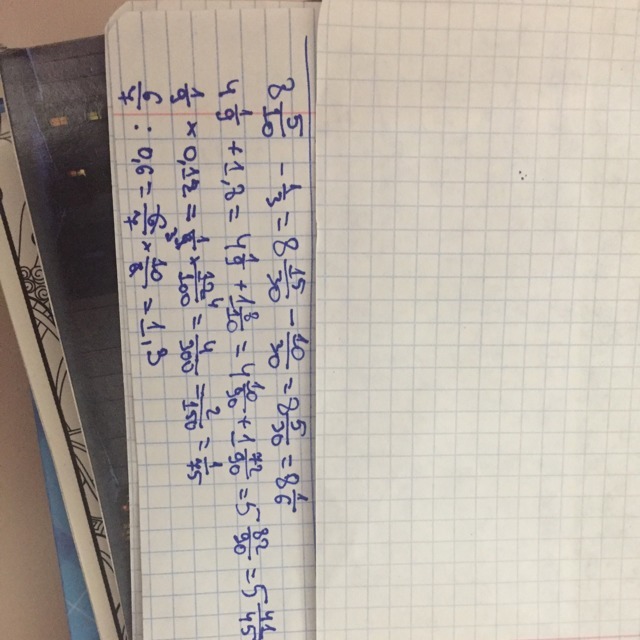 8 5/10 - 1/3 = 8 15/30 - 10/30 = 8 5/30 = 8 1/6
4 1/9 + 1,8 = 4 1/9 + 1 8/10 = 4 10/90 + 1 72/90 = 5 82/90 = 5 41/45
1/9 × 0,12 = 1/9 3 × 12 4/100 = 4/300 = 2/150 = 1/75
6/7 : 0,6 = 6/7 × 10/6 = 1,3